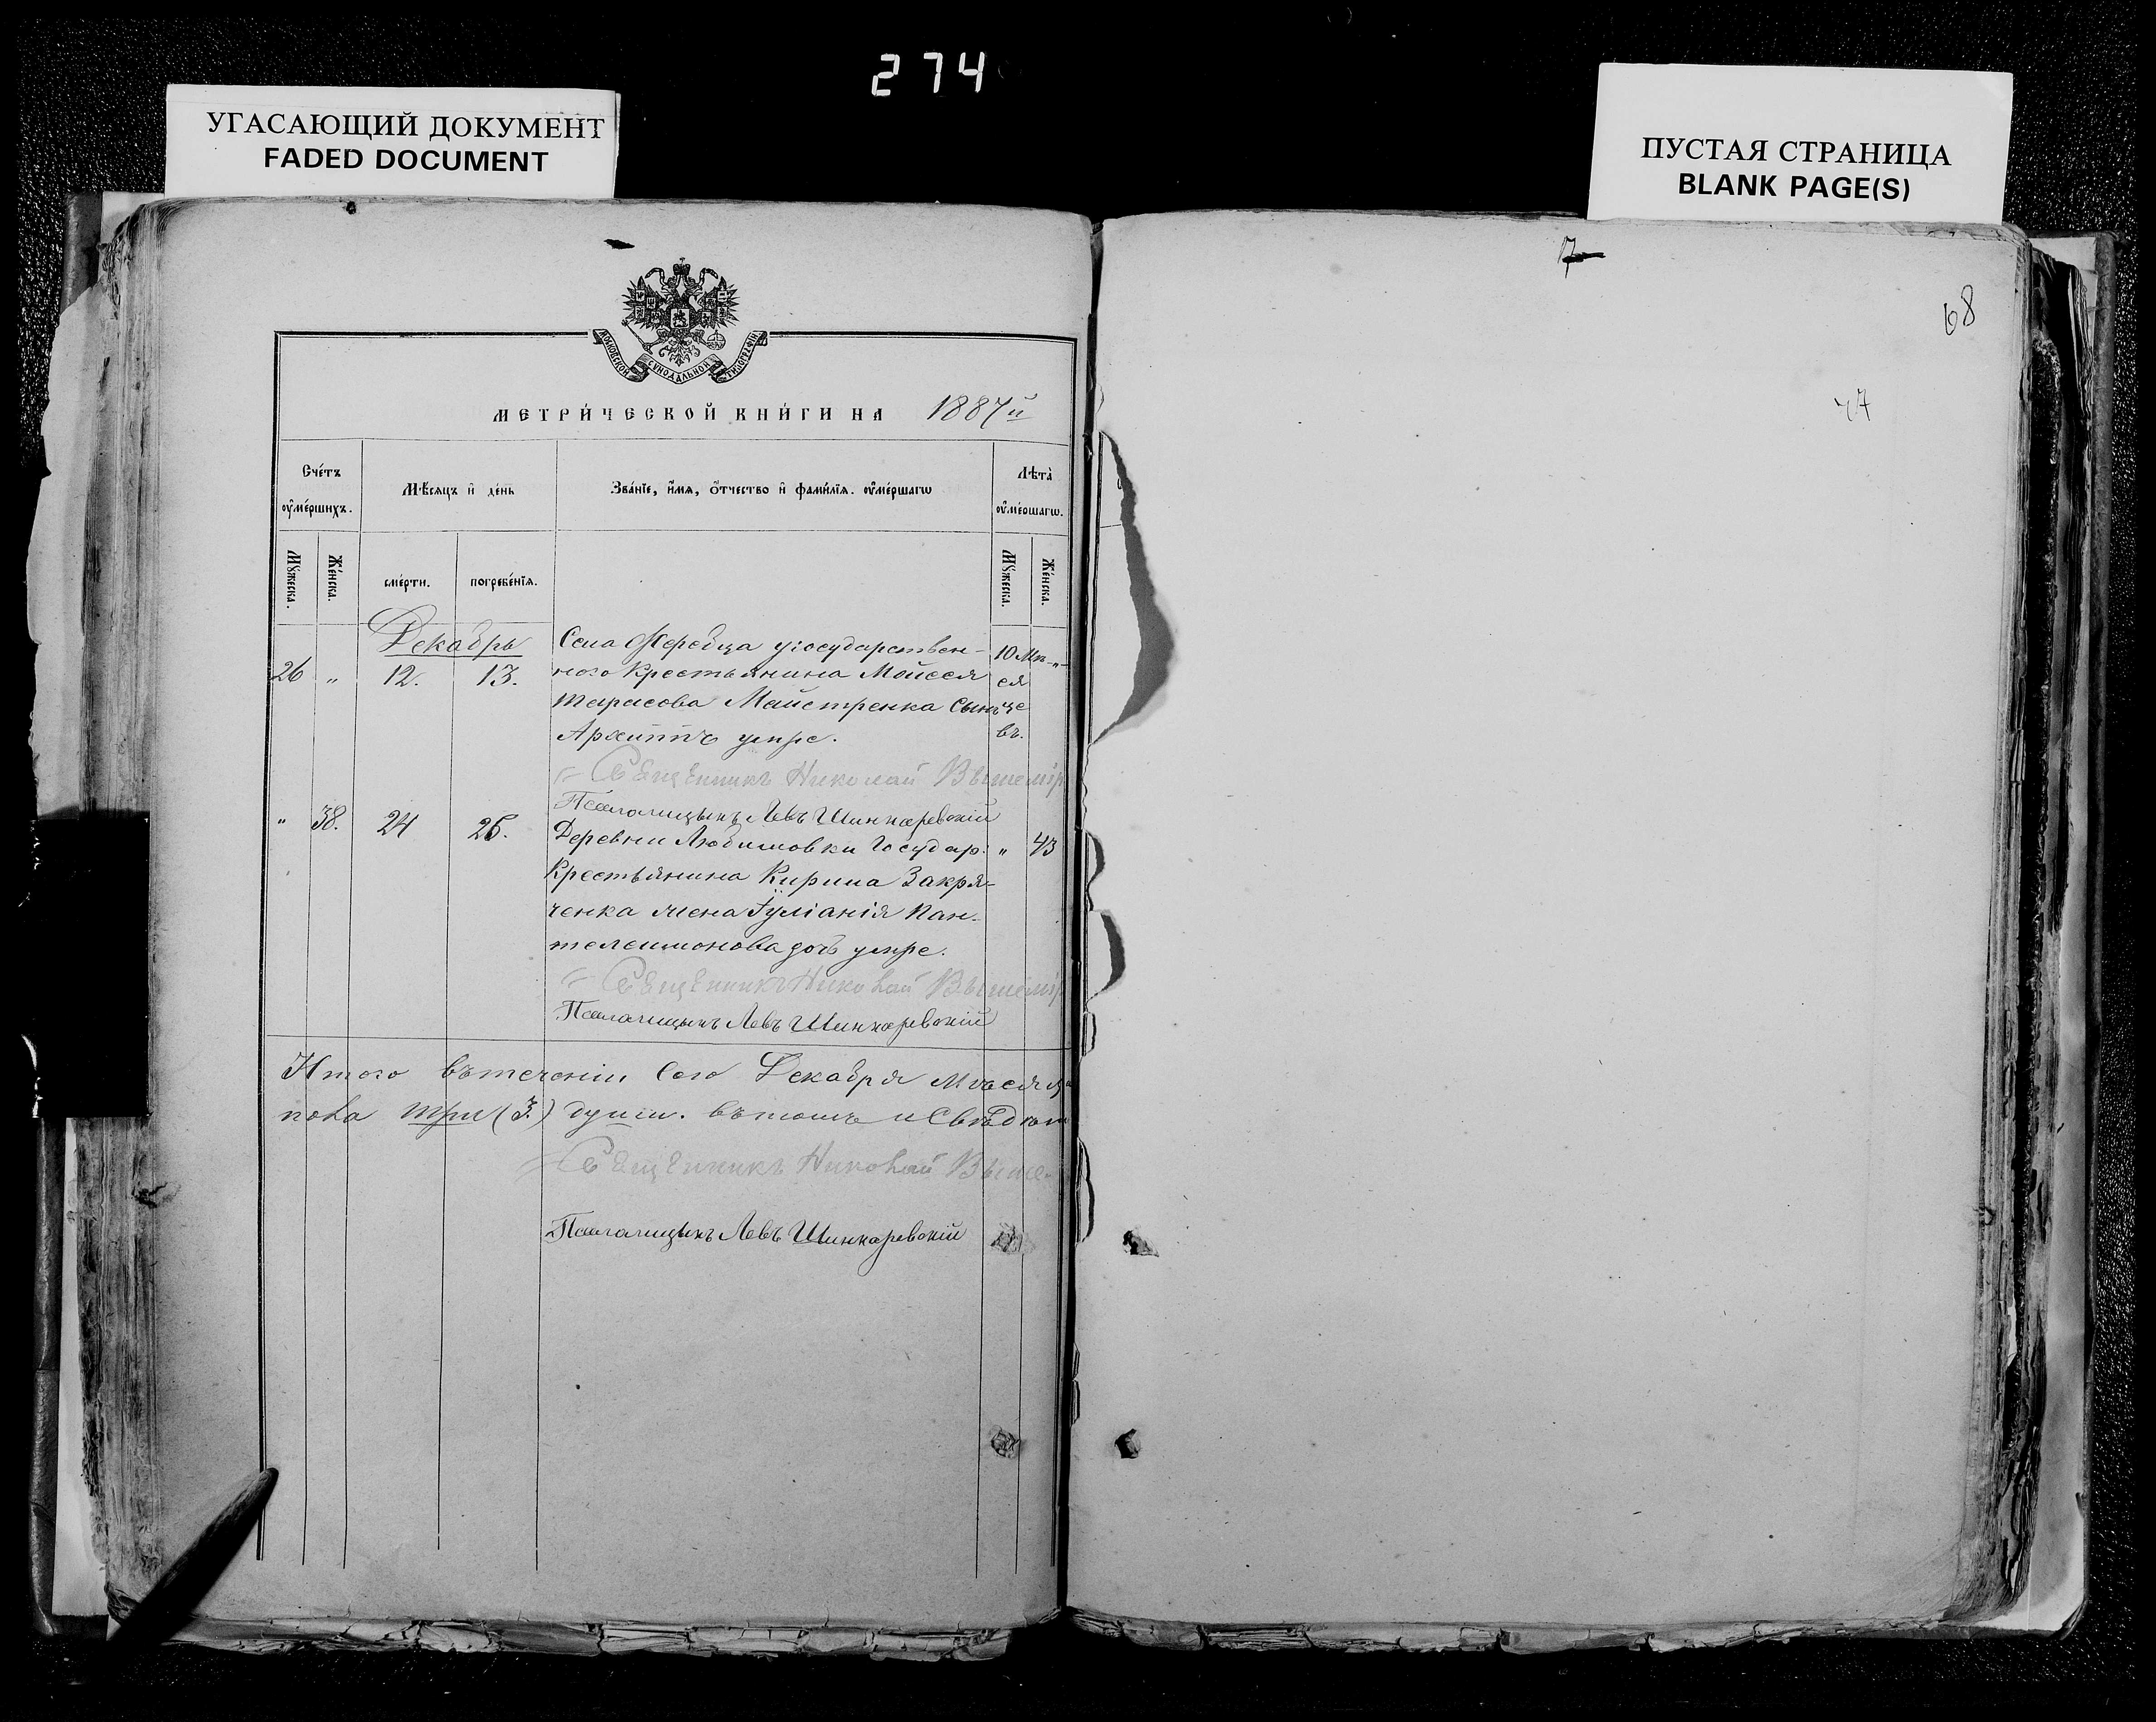 274
УГАСАЮЩИЙ ДОКУМЕНТ
FADED DOCUMENT
ПУСТАЯ СТРАНИЦА
BLANK PAGE(S)
68
МОСКОВСКОЙ СУНОДАЛЬНОЙ ТИПОГРАФІИ
МЕТРИ́ЧЕСКОЙ КНИ́ГИ НА 1887й
Сче́тъ ᲂу҆ме́ршихъ.
Мѣ́сяцъ и҆ де́нь
Зва́нїе, и҆́мя, ѻ҆́тчество и҆ фами́лїя. ᲂу҆ме́ршагѡ
Лѣ́та ᲂу҆ме́ршагѡ.
Мꙋ́жеска.
Же́нска.
сме́рти.
погребе́нїя.
Мꙋ́жеска.
Же́нска.
Декабрь
26 " 12. 13.
Села Жеребца государствен-
наго Крестьянина Мойсея
Тарасова Майстренка Сынъ
Архиппъ умре.
10 Мѣ-
ся
це
въ.
Священникъ Николай Вышемір
Псаломщикъ Левъ Шинкаревскій
" 38. 24 25.
Деревни Любимовки Государ:
Крестьянина Кирила Закря-
ченка жена Іуліанія Пан-
телеимонова дочь умре.
" 43
Священникъ Николай Вышемір
Псаломщикъ Левъ Шинкаревскій
Итого въ теченіи сего Декабря Мѣсяца
пола три (3.) души. въ томъ и Свѣдѣт
Священникъ Николай Выше
Псаломщикъ Левъ Шинкаревскій